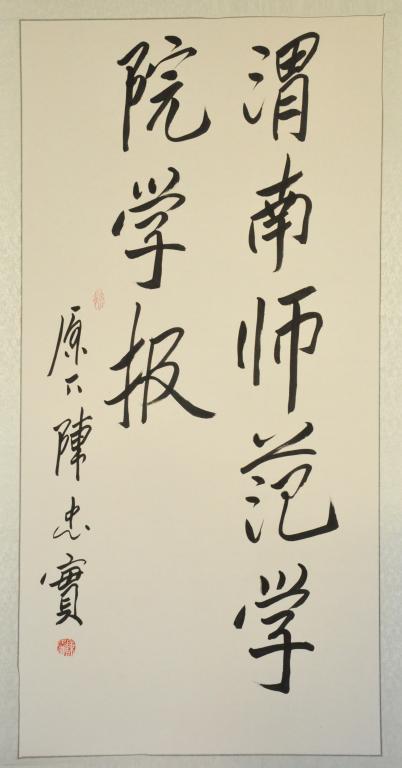 渭南师范学
院学报
原下陳忠實